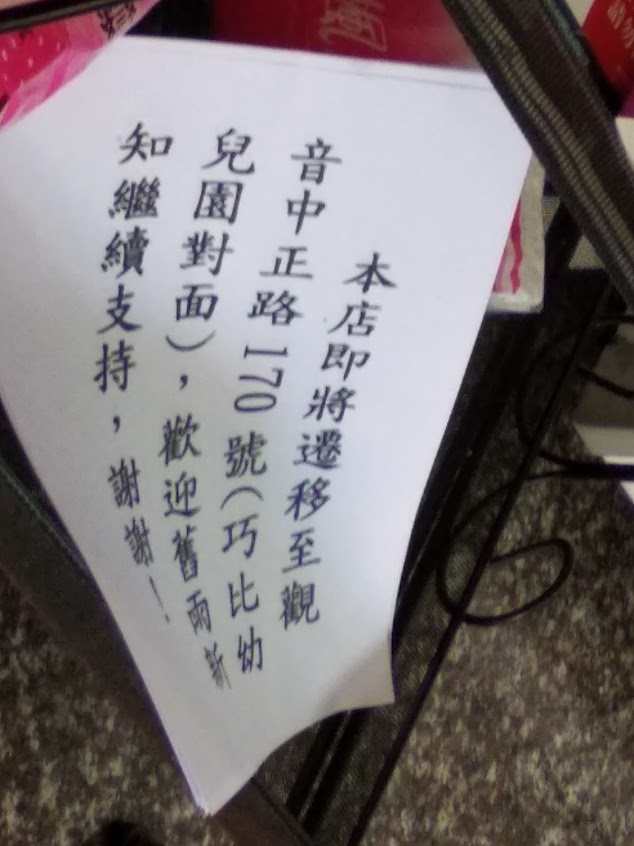 本店即將遷移至觀
音中正路170號(巧比幼
兒園對面),歡迎舊雨新
知繼續支持,謝謝!